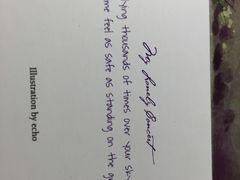 My Lonely Concert
ying thousands of times over your sky
me feel as safe as standing on the g
Illustration by echo